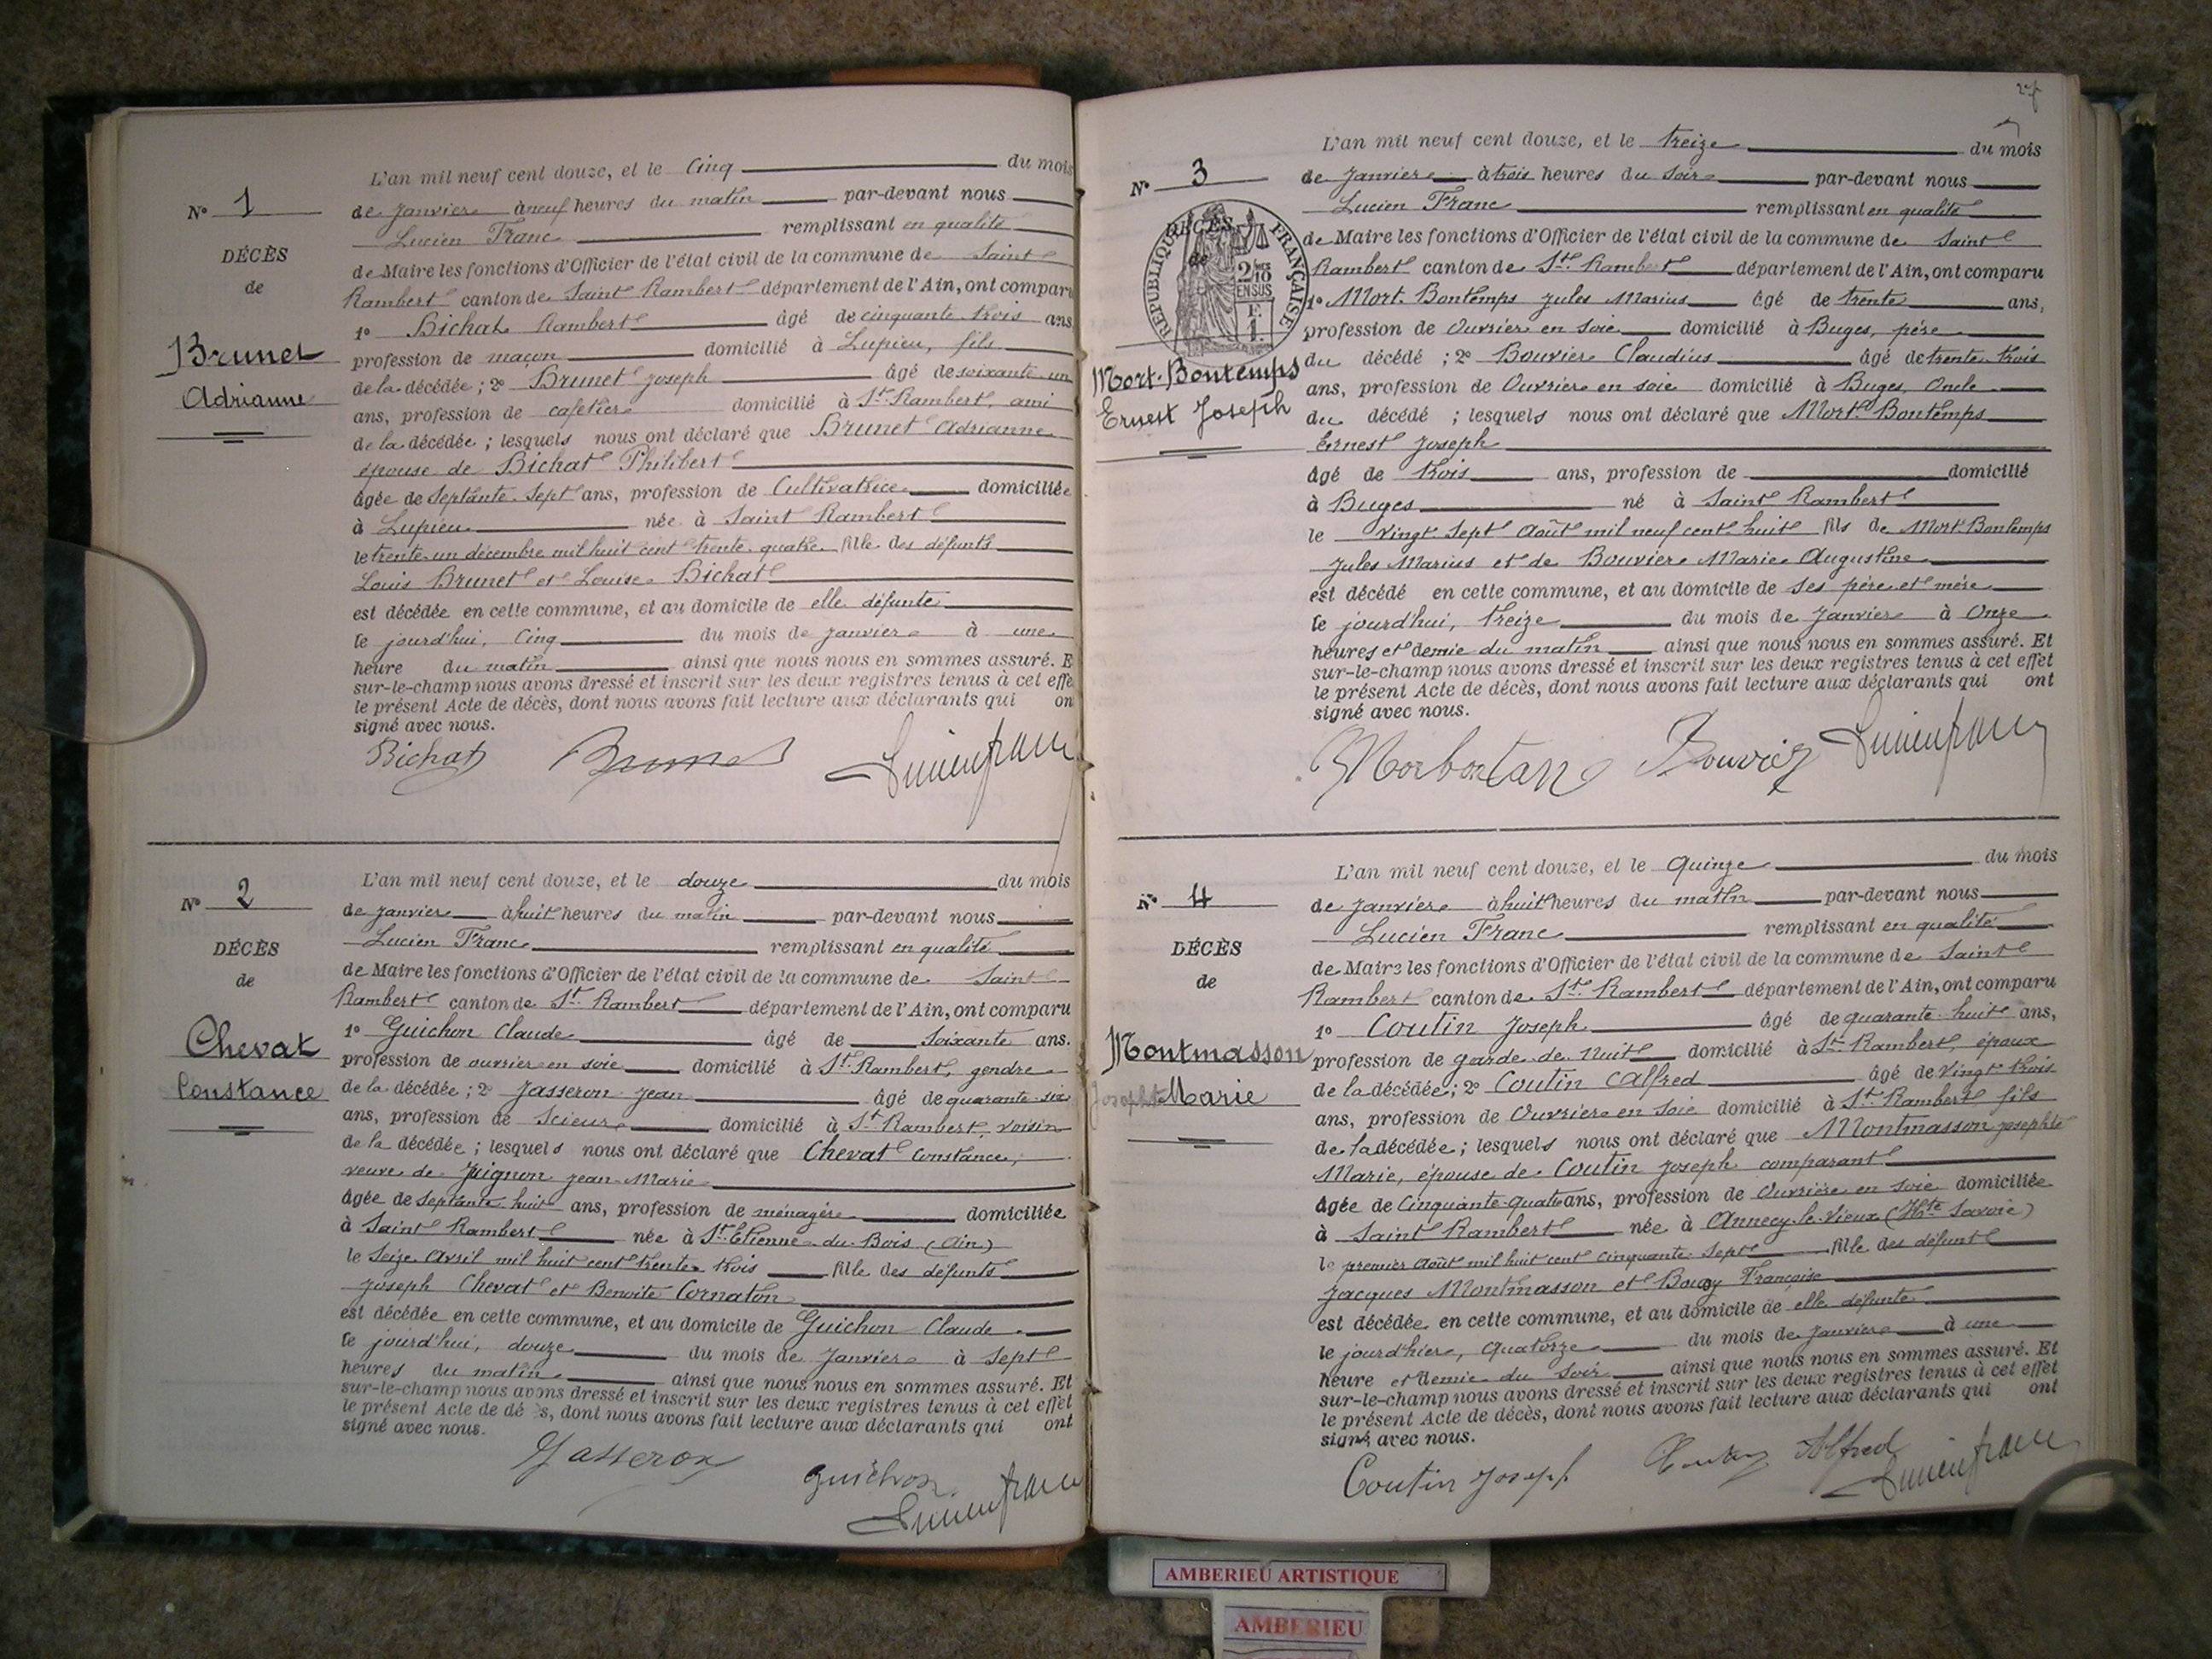 L'an mil neuf cent douze, et le Cinq du mois
N° 1
de Janvier à neuf heures du matin par-devant nous
Lucien Franc remplissant en qualité
DÉCÈS
de Maire les fonctions d'Officier de l'état civil de la commune de Saint
de
Rambert canton de Saint Rambert département de l'Ain, ont comparu
1° Bichat Rambert âgé de cinquante trois ans
Brunet
profession de maçon domicilié à Lupieu, fils
de la décédée ; 2° Brunet Joseph âgé de soixante un
Adrianne
ans, profession de cafetier domicilié à St. Rambert, ami
de la décédée ; lesquels nous ont déclaré que Brunet Adrianne
épouse de Bichat Philibert
âgée de Septante-Sept ans, profession de Cultivatrice domiciliée
à Lupieu née à Saint Rambert
le trente-un décembre mil huit cent trente-quatre fille des défunts
Louis Brunet et Louise Bichat
est décédée en cette commune, et au domicile de elle défunte
le jourd'hui, Cinq du mois de Janvier à une
heure du matin ainsi que nous nous en sommes assuré. E
sur-le-champ nous avons dressé et inscrit sur les deux registres tenus à cet effe
le présent Acte de décès, dont nous avons fait lecture aux déclarants qui on
signé avec nous.
Bichat Brunet Lucien franc
L'an mil neuf cent douze, et le douze du mois
N° 2
de Janvier à huit heures du matin par-devant nous
Lucien Franc remplissant en qualité
DÉCÈS
de Maire les fonctions d'Officier de l'état civil de la commune de Saint
de
Rambert canton de St. Rambert département de l'Ain, ont comparu
1° Guichon Claude âgé de Soixante ans.
Chevat
profession de ouvrier en soie domicilié à St. Rambert, gendre
de la décédée ; 2° Jasseron Jean âgé de quarante-six
Constance
ans, profession de Scieur domicilié à St Rambert, voisin
de la décédée ; lesquels nous ont déclaré que Chevat Constance,
veuve de Juignon Jean-Marie
âgée de Septante huit ans, profession de ménagère domiciliée
à Saint Rambert née à St. Etienne-du-Bois (Ain)
le Seize Avril mil huit cent trente trois fille des défunts
Joseph Chevat et Benoite Cornaton
est décédée en cette commune, et au domicile de Guichon Claude
le jourd'hui, douze du mois de Janvier à Sept
heures du matin ainsi que nous nous en sommes assuré. Et
sur-le-champ nous avons dressé et inscrit sur les deux registres tenus à cet effet
le présent Acte de dé s, dont nous avons fait lecture aux déclarants qui ont
signé avec nous.
Jasseron
Guichon
Lucien franc
L'an mil neuf cent douze, et le treize du mois
N° 3
de Janvier à trois heures du Soir par-devant nous
Lucien Franc remplissant en qualité
RÉPUBLIQUE FRANÇAISE
DÉCÈS
de
2/10 EN SUS
de Maire les fonctions d'Officier de l'état civil de la commune de Saint
Rambert canton de St. Rambert département de l'Ain, ont comparu
1° Mort-Bontemps Jules Marius âgé de trente ans,
profession de Ouvrier en Soie domicilié à Buges, père
Mort-Bontemps
du décédé ; 2° Bouvier Claudius âgé de trente trois
Ernest Joseph
ans, profession de Ouvrier en soie domicilié à Buges, Oncle
du décédé ; lesquels nous ont déclaré que Mort-Bontemps
Ernest Joseph
âgé de trois ans, profession de domicilié
à Buges né à Saint Rambert
le Vingt-Sept Août mil neuf cent huit fils de Mort-Bontemps
Jules Marius et de Bouvier Marie Augustine
est décédé en cette commune, et au domicile de Ses père et mère
le jourd'hui, treize du mois de Janvier à Onze
heures et demie du matin ainsi que nous nous en sommes assuré. Et
sur-le-champ nous avons dressé et inscrit sur les deux registres tenus à cet effet
le présent Acte de décès, dont nous avons fait lecture aux déclarants qui ont
signé avec nous.
Bouvier Lucien franc
L'an mil neuf cent douze, et le Quinze du mois
N° 4
de Janvier à huit heures du matin par-devant nous
Lucien Franc remplissant en qualité
DÉCÈS
de Maire les fonctions d'Officier de l'état civil de la commune de Saint
de
Rambert canton de St. Rambert département de l'Ain, ont comparu
1° Coutin Joseph âgé de quarante-huit ans,
Montmasson
profession de garde-de-Nuit domicilié à St. Rambert, époux
de la décédée ; 2° Coutin Alfred âgé de Vingt-trois
Josephte Marie
ans, profession de Ouvrier en Soie domicilié à St. Rambert fils
de la décédée ; lesquels nous ont déclaré que Montmasson Josephte
Marie, épouse de Coutin Joseph comparant
âgée de Cinquante-quatre ans, profession de Ouvrière en soie domiciliée
à Saint Rambert née à Annecy-le-Vieux (Hte Savoie)
le premier Août mil huit cent cinquante-Sept fille des défunt
Jacques Montmasson et Bougy Françoise
est décédée en cette commune, et au domicile de elle défunte
le jourd'hier, Quatorze du mois de Janvier à une
heure et demie du Soir ainsi que nous nous en sommes assuré. Et
sur-le-champ nous avons dressé et inscrit sur les deux registres tenus à cet effet
le présent Acte de décès, dont nous avons fait lecture aux déclarants qui ont
signé avec nous.
Coutin Joseph Coutin Alfred
Lucien franc
AMBERIEU ARTISTIQUE
AMBERIEU